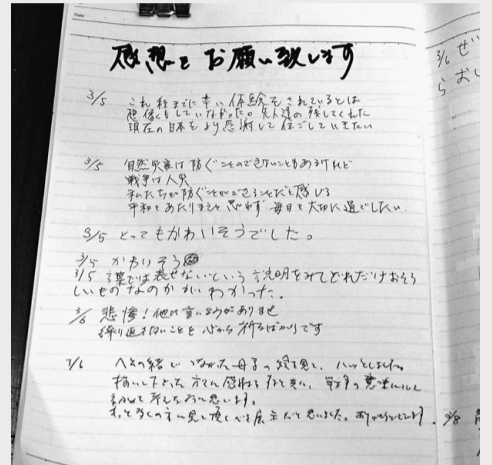 感想をお願い致します
3/5 これ程までに辛い体験をされているとは
想像もしていなかった。先人達の残してくれた
現在の日本をより感謝して過ごしていきたい
3/5 自然災害は防ぐことのできないこともあるけれど
戦争は人災
私たちが防ぐことができることだと感じる
平和をあたりまえと思わず 毎日を大切に過ごしたい。
3/5 とってもかわいそうでした。
3/5 かわいそう
3/5 言葉では表せないという説明をみてどれだけおそろ
しいものなのかがわかった。
3/6 悲惨！他に言いようがありませ
繰り返さないことを心から祈るばかりです
3/6 へその緒でつながった母子の絵を見て、ハッとしました。
描いて下さった方に感謝すると共に、戦争の
と思います。
もっと多くの方に見て頂くべき展示だと思いました。ありがとうございます。
3/8
3/6 ぜ
らおし